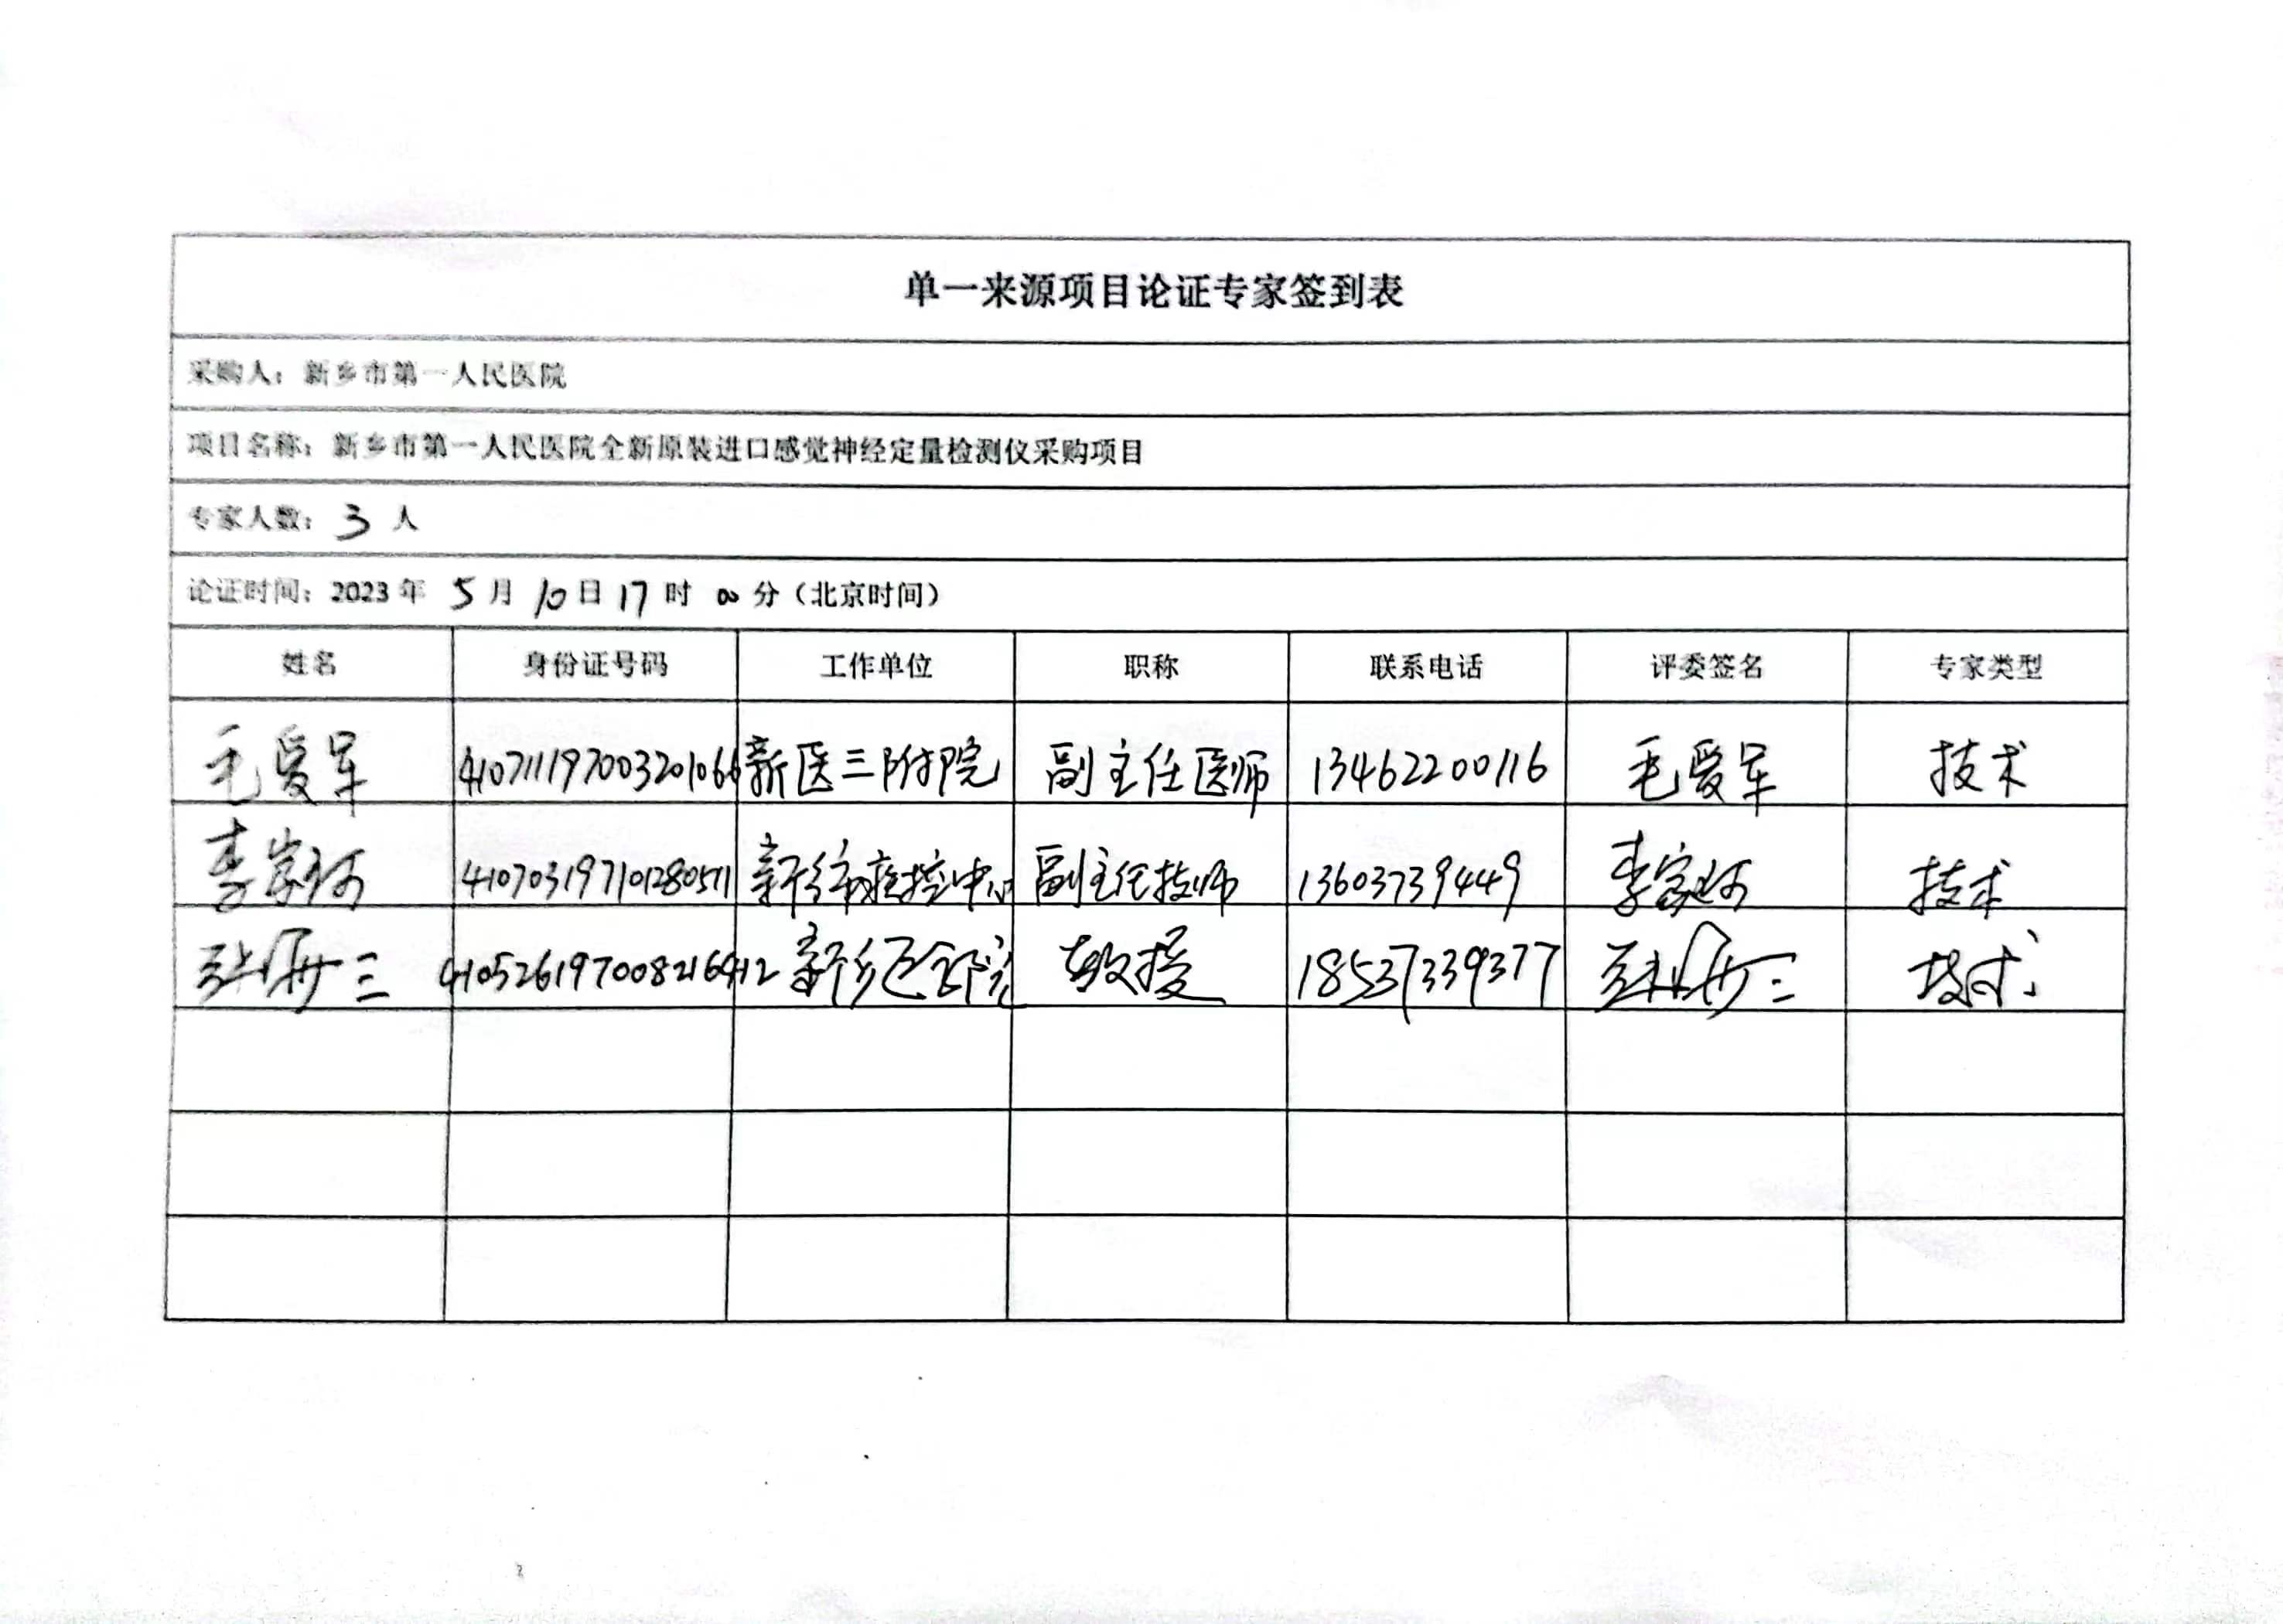 单一来源项目论证专家签到表
采购人：新乡市第一人民医院
项目名称：新乡市第一人民医院全新原装进口感觉神经定量检测仪采购项目
专家人数：3 人
论证时间：2023 年 5 月 10 日 17 时 00 分（北京时间）
姓名 身份证号码 工作单位 职称 联系电话 评委签名 专家类型
毛爱军 410711197003201066 新医三附院 副主任医师 13462200116 毛爱军 技术
李家河 410703197101280511 新乡市疾控中心 副主任技师 13603739449 李家河 技术
三 410526197008216412 新乡医学院 教授 18537339377 三 技术